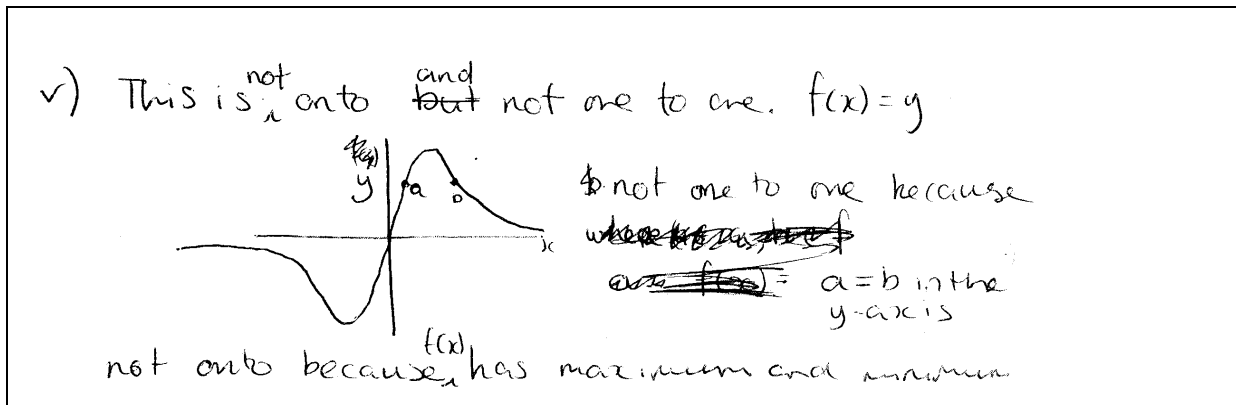 v) This is not onto and not one to one. f(x) = y
y
a
b
x
not one to one because
a = b in the
y-axis
not onto because f(x) has maximum and minimum